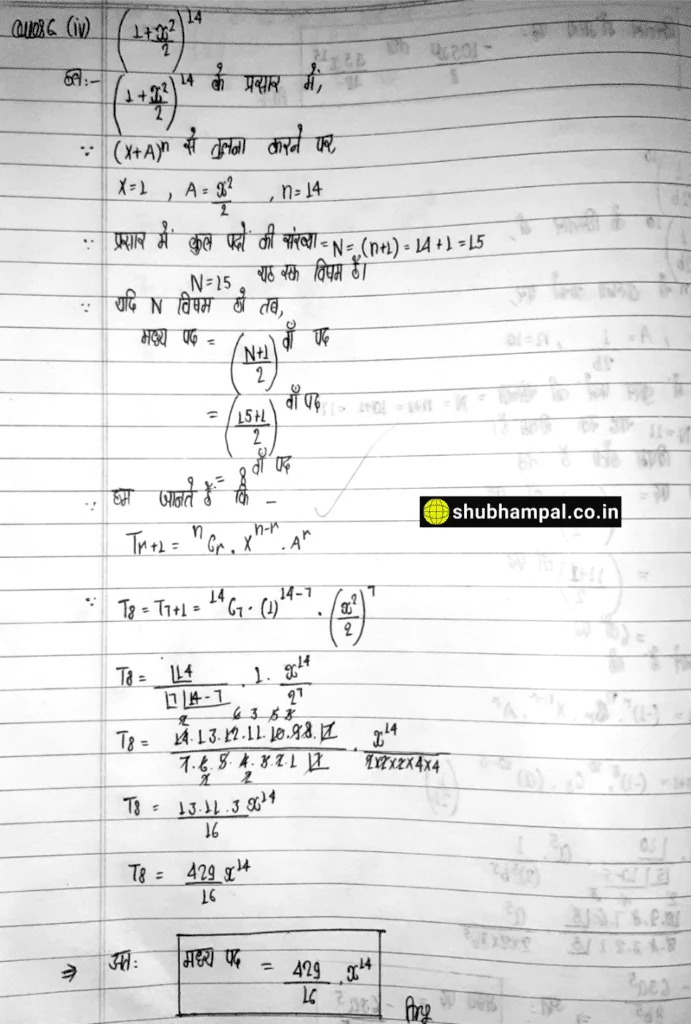 Ques 6 (iv) (1+x²/2)^14
हल:- (1+x²/2)^14 के प्रसार में,
∵ (x+A)^n से तुलना करने पर,
X=1 , A = x²/2 , n=14
∵ प्रसार में कुल पदों की संख्या = N = (n+1) = 14+1 = 15
N=15 यह एक विषम है।
∵ यदि N विषम हो तब,
मध्य पद = (N+1/2) वाँ पद
= (15+1/2) वाँ पद
= 8 वाँ पद
∵ हम जानते हैं कि -
shubhampal.co.in
Tr+1 = nCr . X^n-r . A^r
∵ T8 = T7+1 = 14C7 . (1)^14-7 . (x²/2)^7
T8 = ⌊14/⌊7 ⌊14-7 . 1 . x^14/2^7
T8 = 14.13.12.11.10.9.8.⌊7/7.6.5.4.3.2.1 ⌊7 . x^14/2×2×2×4×4
T8 = 13.11.3 x^14/16
T8 = 429 x^14/16
⇒ अतः मध्य पद = 429/16 . x^14
Ans